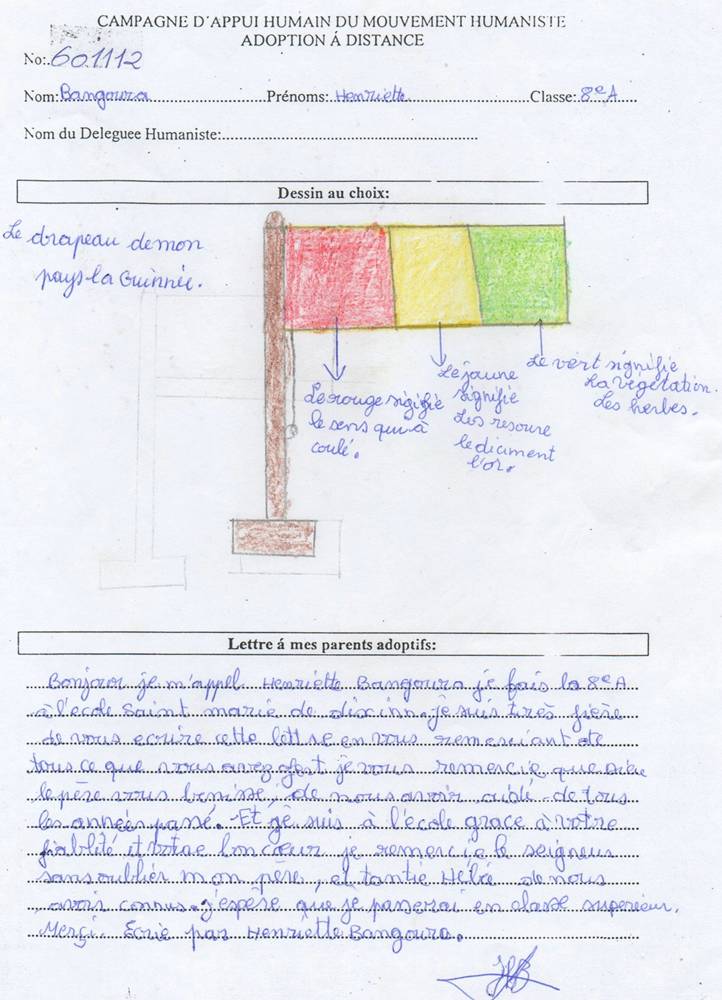 CAMPAGNE D'APPUI HUMAIN DU MOUVEMENT HUMANISTE
ADOPTION Á DISTANCE
No: 601112
Nom: Bangoura Prénoms: Henriette Classe: 8e A
Nom du Deleguee Humaniste:
Dessin au choix:
Le drapeau demon
pays la Guinnée.
Le rouge sigifie
le sens qui à
coulé.
Le jaune
signifie
Les resoure
le diciment
l'or.
Le vert signifie
La végétation.
Les herbes.
Lettre á mes parents adoptifs:
Bonjour je m'appel Henriette Bangoura je fais la 8e A
à l'ecole Saint marie de dixinn. je suis tirès fière
de vous ecrire cette lettre en vous remerciant de
tous ce que vous avez fait je vous remercie que dieu
le père vous benisse, de nous avoir aidé de tous
les années passé. Et je suis à l'école grace à votre
fiablité et votre bon cœur je remercie le seigneur
sans oublier mon père, et tantie Hélé de nous
avoir connus. j'espère que je passerai en classe superieur.
Merçi. Ecrie par Henriette Bangoura.
HB